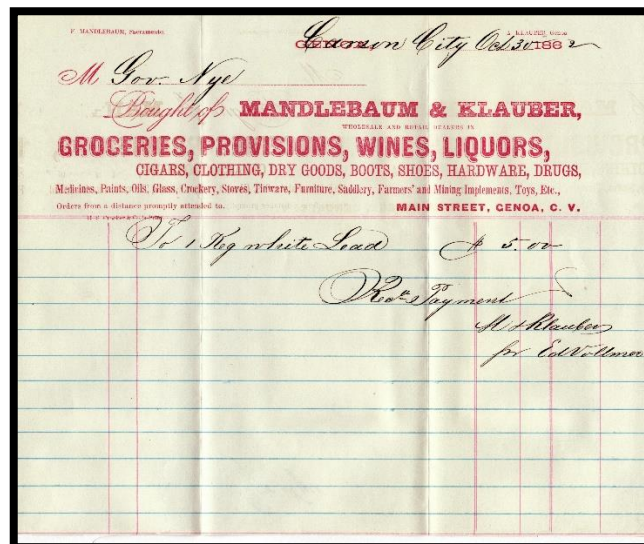 F MANDLEBAUM, Sacramento. A. KLAUBER, Genoa
GENOA, Carson City Oct 30 1862
M Gov. Nye
Bought of MANDLEBAUM & KLAUBER,
WHOLESALE AND RETAIL DEALERS IN
GROCERIES, PROVISIONS, WINES, LIQUORS,
CIGARS, CLOTHING, DRY GOODS, BOOTS, SHOES, HARDWARE, DRUGS,
Medicines, Paints, Oils, Glass, Crockery, Stoves, Tinware, Furniture, Saddlery, Farmers' and Mining Implements, Toys, Etc.,
Orders from a distance promptly attended to. MAIN STREET, GENOA, C. V.
To 1 Keg white Lead $ 5.00
Recd Payment
M & Klauber
pr Ed Vollmer